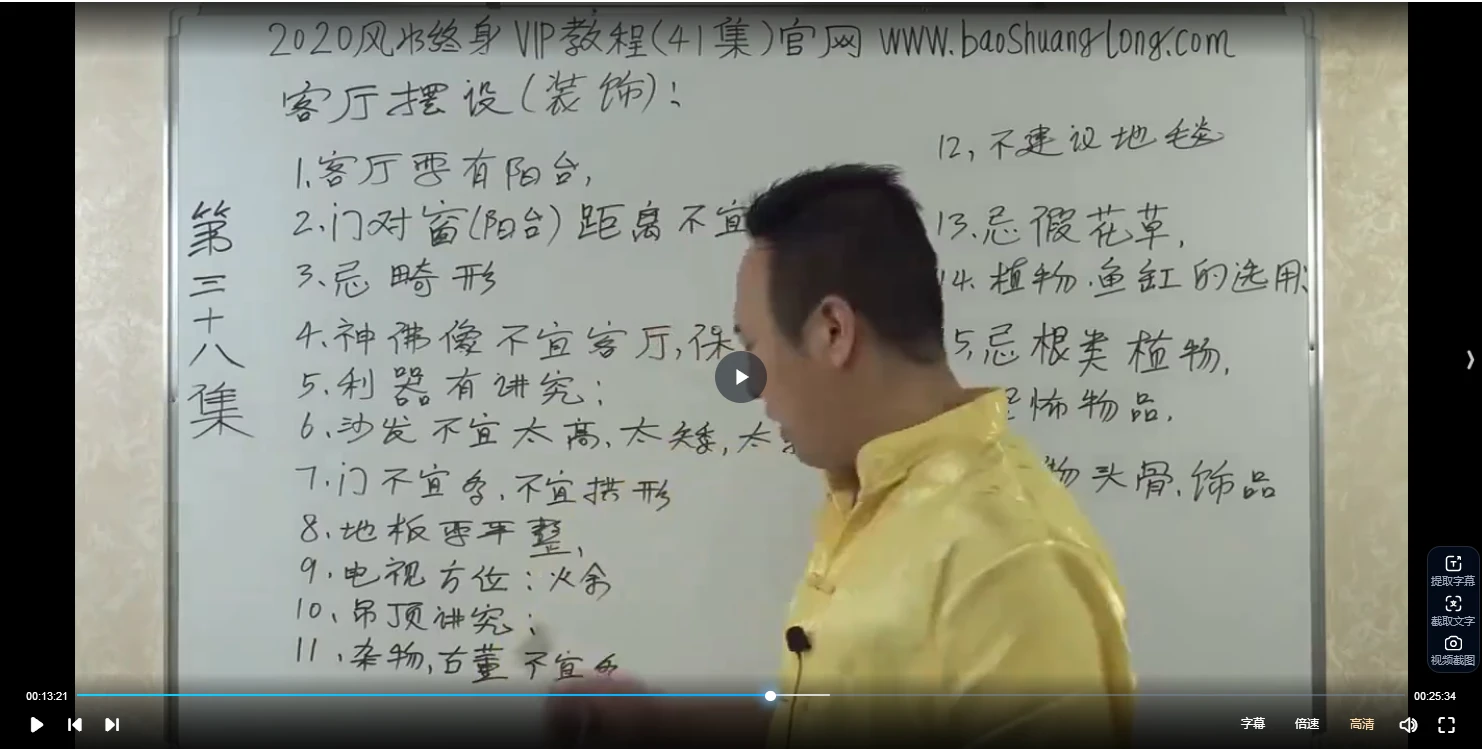 2020风水终身VIP教程(41集)官网 www.baoshuanglong.com
客厅摆设(装饰):
第三十八集
1.客厅要有阳台,
2.门对窗(阳台)距离不宜
3.忌畸形
4.神佛像不宜客厅,保
5.利器有讲究:
6.沙发不宜太高,太矮,太
7.门不宜多,不宜拱形
8.地板要平整,
9.电视方位:火
10.吊顶讲究:
11.杂物,古董不宜多
12,不建议地毯
13.忌假花草,
14.植物.鱼缸的选用:
5.忌根类植物,
怖物品.
物头骨.饰品
提取字幕
截取文字
视频截图
00:13:21
00:25:34
字幕
倍速
高清